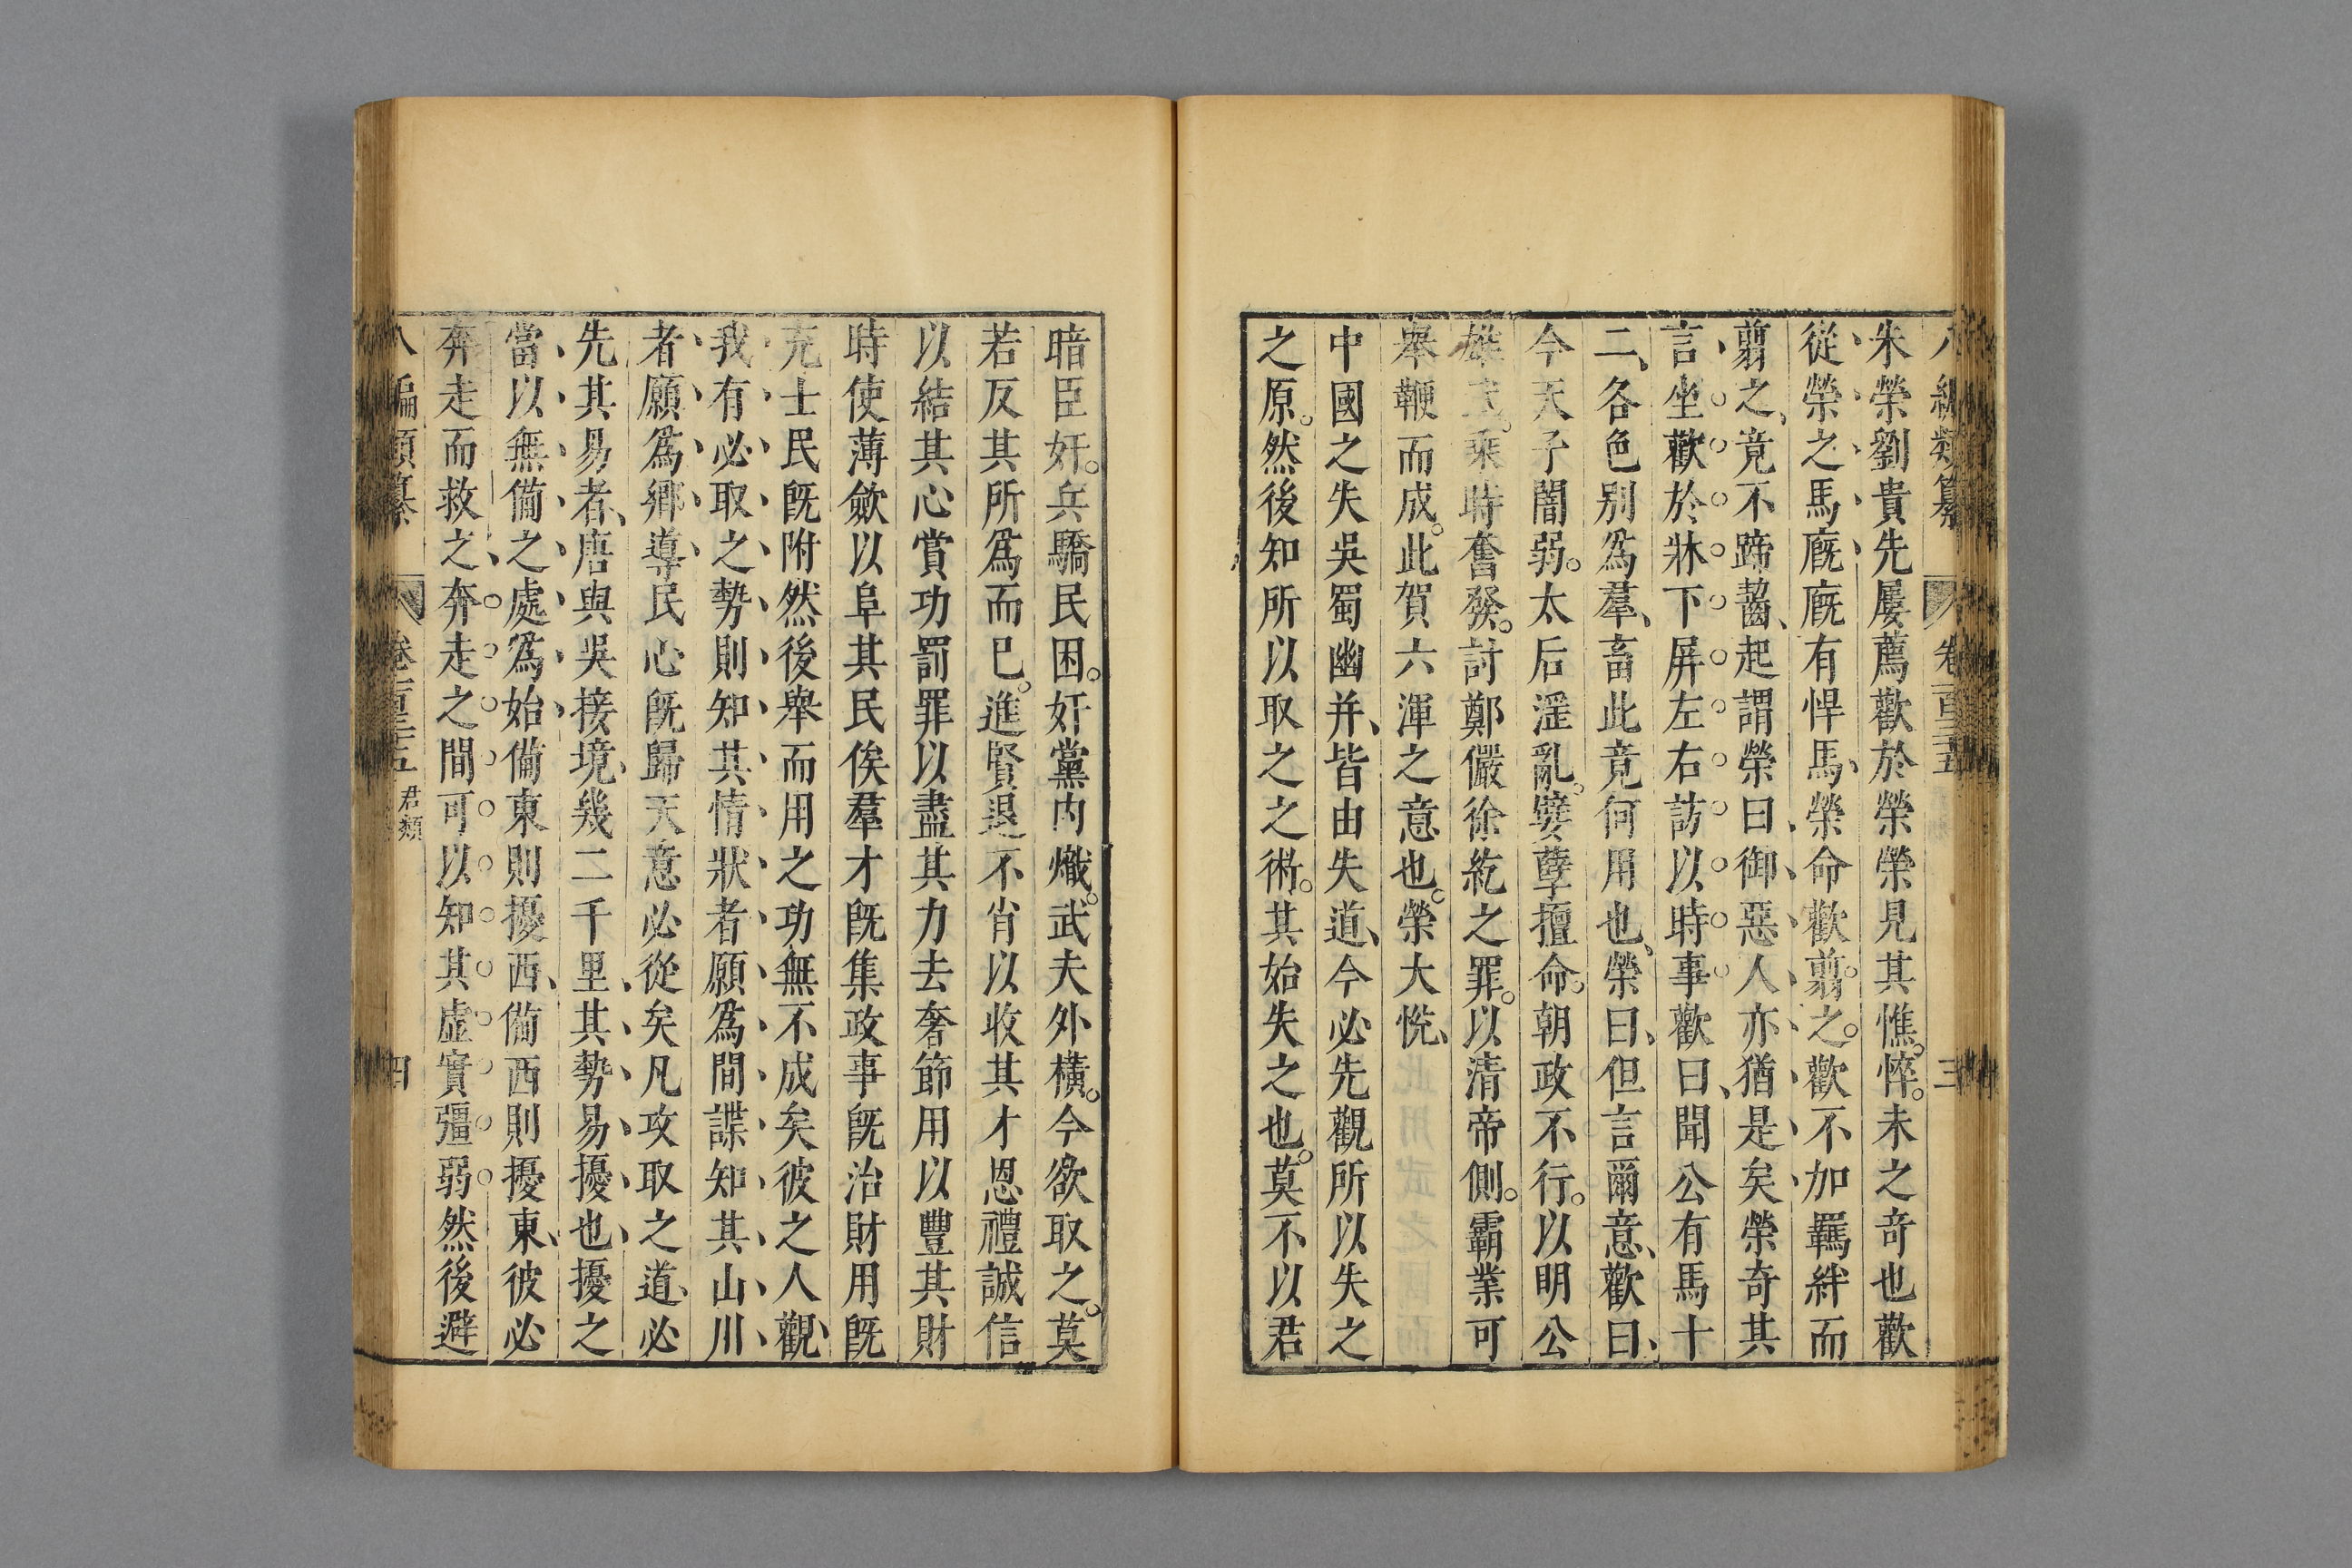 八編類纂 卷一百三十五 三
朱榮劉貴先屢薦歡於榮榮見其憔悴。未之奇也歡
從榮之馬廐廐有悍馬、榮命歡翦之。歡不加羈絆而
翦之、竟不蹄齧、起謂榮曰御惡人亦猶是矣榮奇其
言坐歡於牀下屏左右訪以時事歡曰、聞公有馬十
二、各色別爲羣、畜此竟何用也、榮曰、但言爾意、歡曰、
今天子闇弱。太后滛亂。嬖孽擅命。朝政不行。以明公
雄武。乘時奮發。討鄭儼徐紇之罪。以清帝側。霸業可
舉鞭而成。此賀六渾之意也。榮大恱、
中國之失吳蜀幽并、皆由失道、今必先觀所以失之
之原。然後知所以取之之術。其始失之也。莫不以君
暗臣奸。兵驕民困。奸黨內熾。武夫外橫。今欲取之。莫
若反其所爲而已。進賢退不肖以收其才恩禮誠信
以結其心賞功罰罪以盡其力去奢節用以豐其財
時使薄歛以阜其民俟羣才旣集政事旣治財用旣
充士民旣附然後舉而用之功無不成矣彼之人觀、
我有必取之勢則知其情狀者願爲間諜知其山川
者願爲鄉導民心旣歸天意必從矣凡攻取之道、必
先其易者、唐與吳接境、幾二千里、其勢易擾也、擾之
當以無備之處爲始備東則擾西、備西則擾東、彼必
奔走而救之、奔走之間可以知其虛實彊弱然後避
八編類纂 卷一百三十五 君類 四